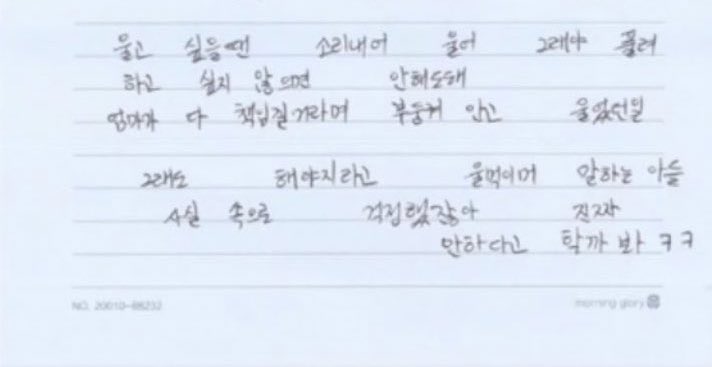 울고 싶을땐 소리내어 울어 그래야 풀려
하고 싶지 않으면 안해도돼
엄마가 다 책임질거라며 부둥켜 안고 울었던일
그래도 해야지라고 울먹이며 말하는 아들
사실 속으로 걱정했잖아 진짜
안하다고 할까 봐 ㅋㅋ
NO. 20010-68232 morning glory